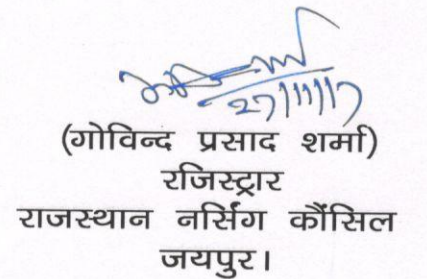 27/11/17
(गोविन्द प्रसाद शर्मा)
रजिस्ट्रार
राजस्थान नर्सिंग कौंसिल
जयपुर।